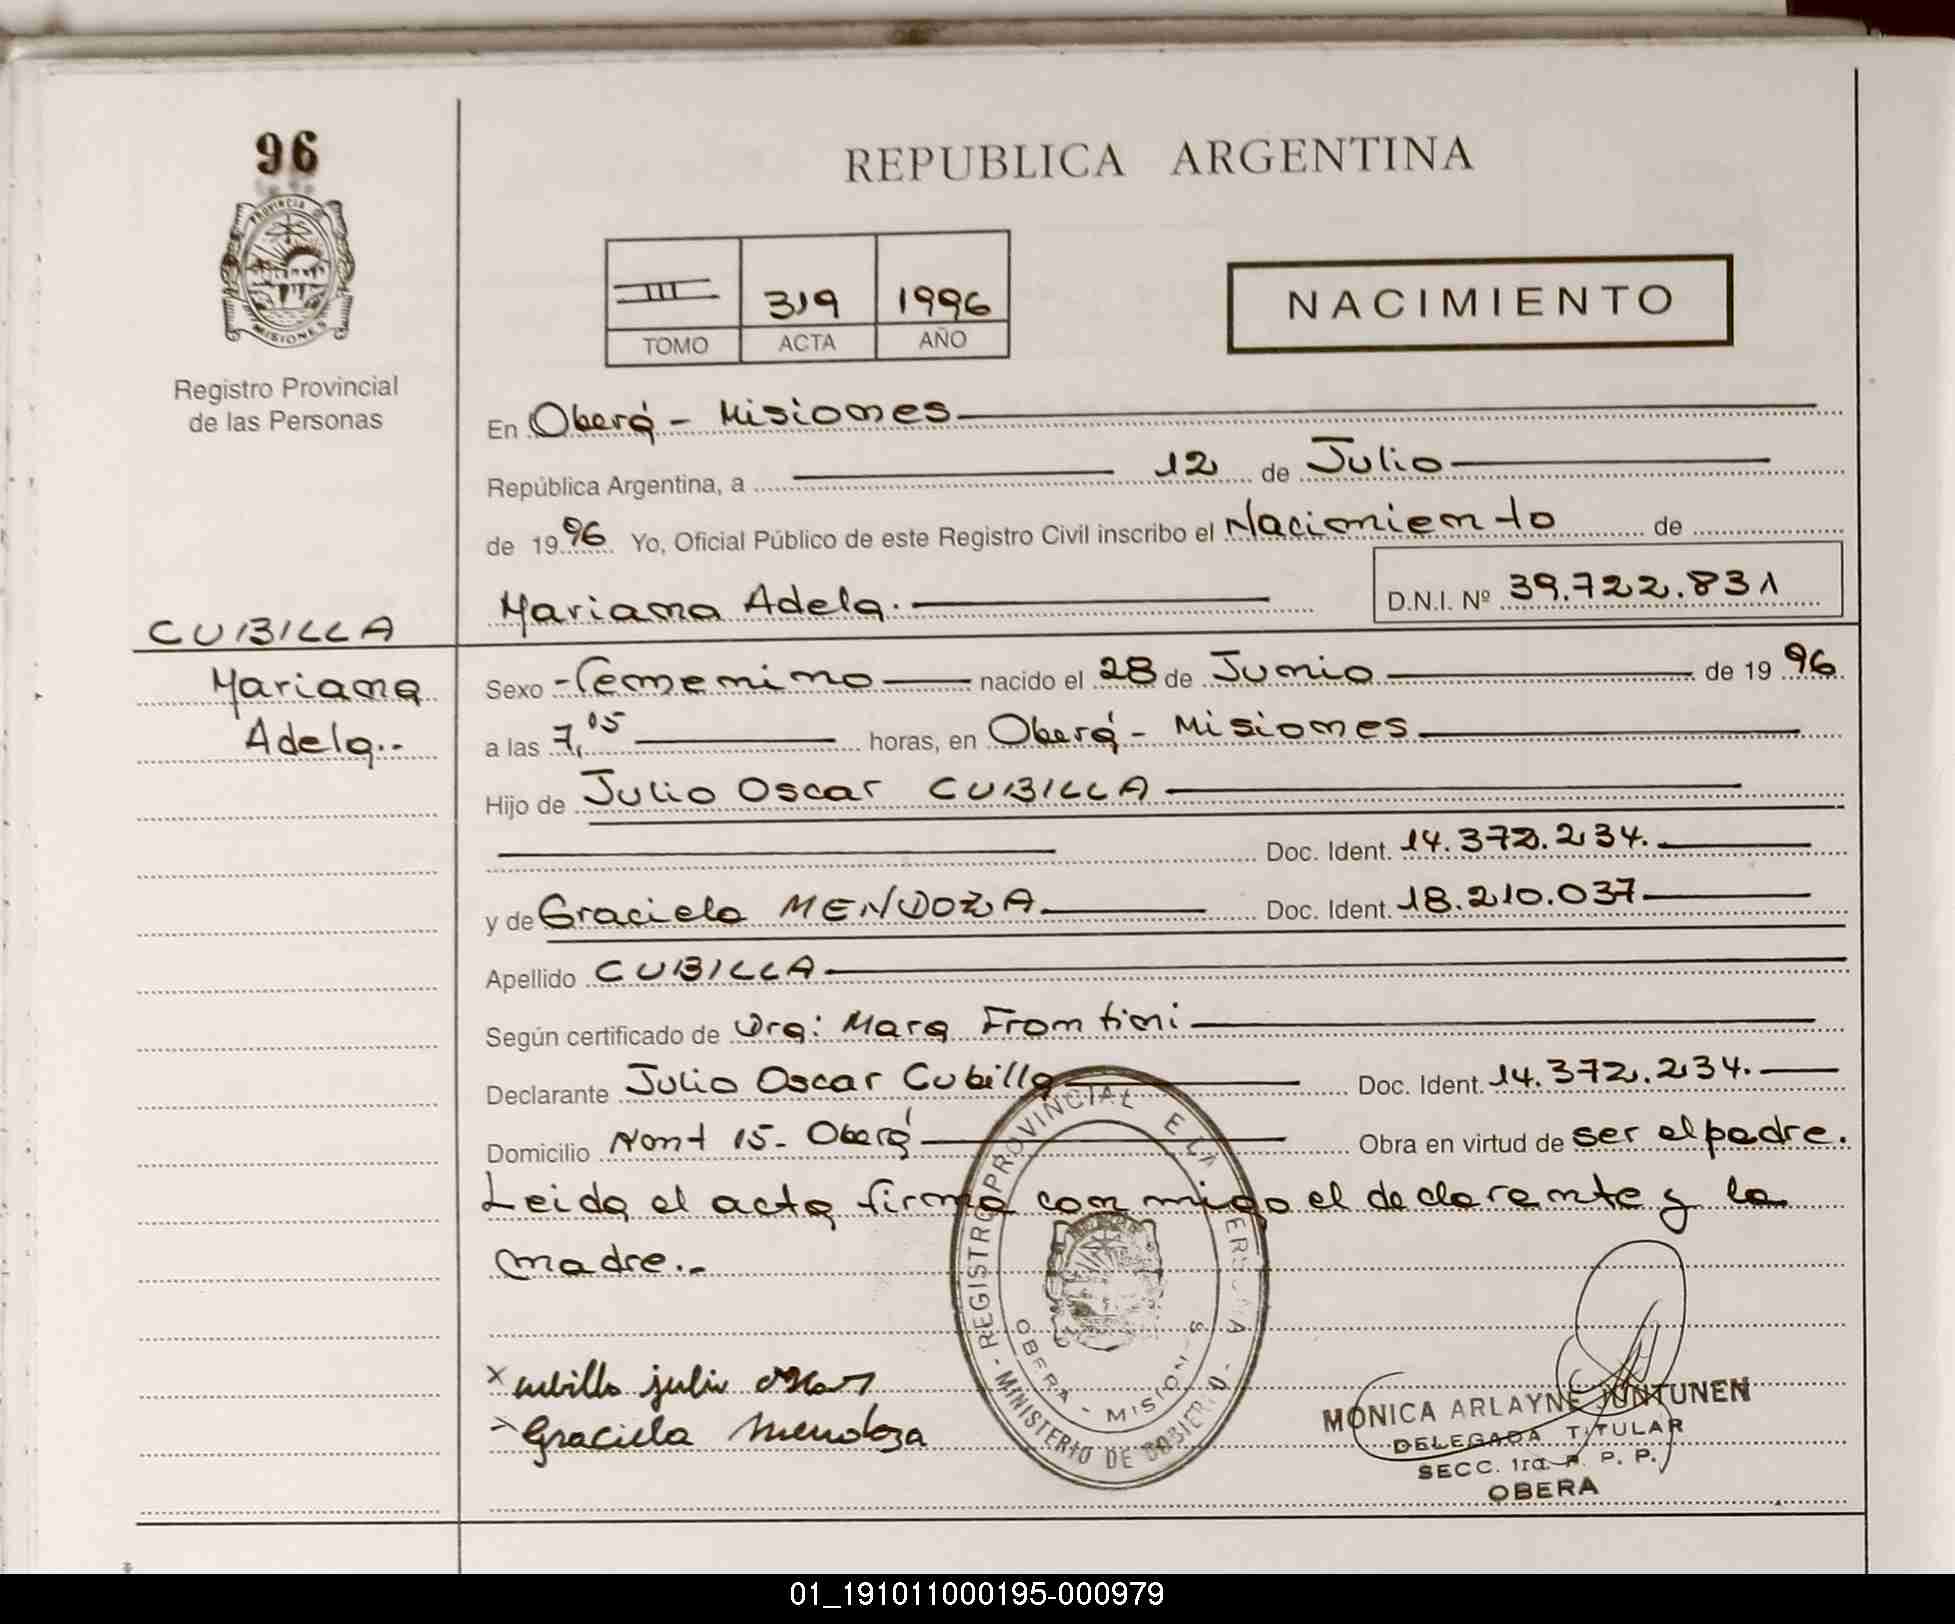 96
PROVINCIA DE
MISIONES
Registro Provincial
de las Personas
REPUBLICA ARGENTINA
III 319 1996
TOMO ACTA AÑO
NACIMIENTO
En Oberá - Misiones
República Argentina, a 12 de Julio
de 1996 Yo, Oficial Público de este Registro Civil inscribo el Nacimiento de
Mariana Adela. D.N.I. Nº 39.722.831
CUBILLA
Mariana
Adela.-
Sexo Femenino nacido el 28 de Junio de 1996
a las 7,05 horas, en Oberá - Misiones
Hijo de Julio Oscar CUBILLA
Doc. Ident. 14.372.234.
y de Graciela MENDOZA Doc. Ident. 18.210.037
Apellido CUBILLA
Según certificado de Dra: Mara Frontini
Declarante Julio Oscar Cubilla Doc. Ident. 14.372.234.
Domicilio Nont 15- Oberá Obra en virtud de ser el padre.
Leida el acta firma con migo el declarante y la
madre.-
x cubilla julio oscar
x Graciela Mendoza
REGISTRO PROVINCIAL E LA ERSONA
OBERA - MISIONES
MINISTERIO DE GOBIERNO
MONICA ARLAYNE JUNTUNEN
DELEGADA TITULAR
SECC. 1ra. R. P. P.
OBERA
01_191011000195-000979